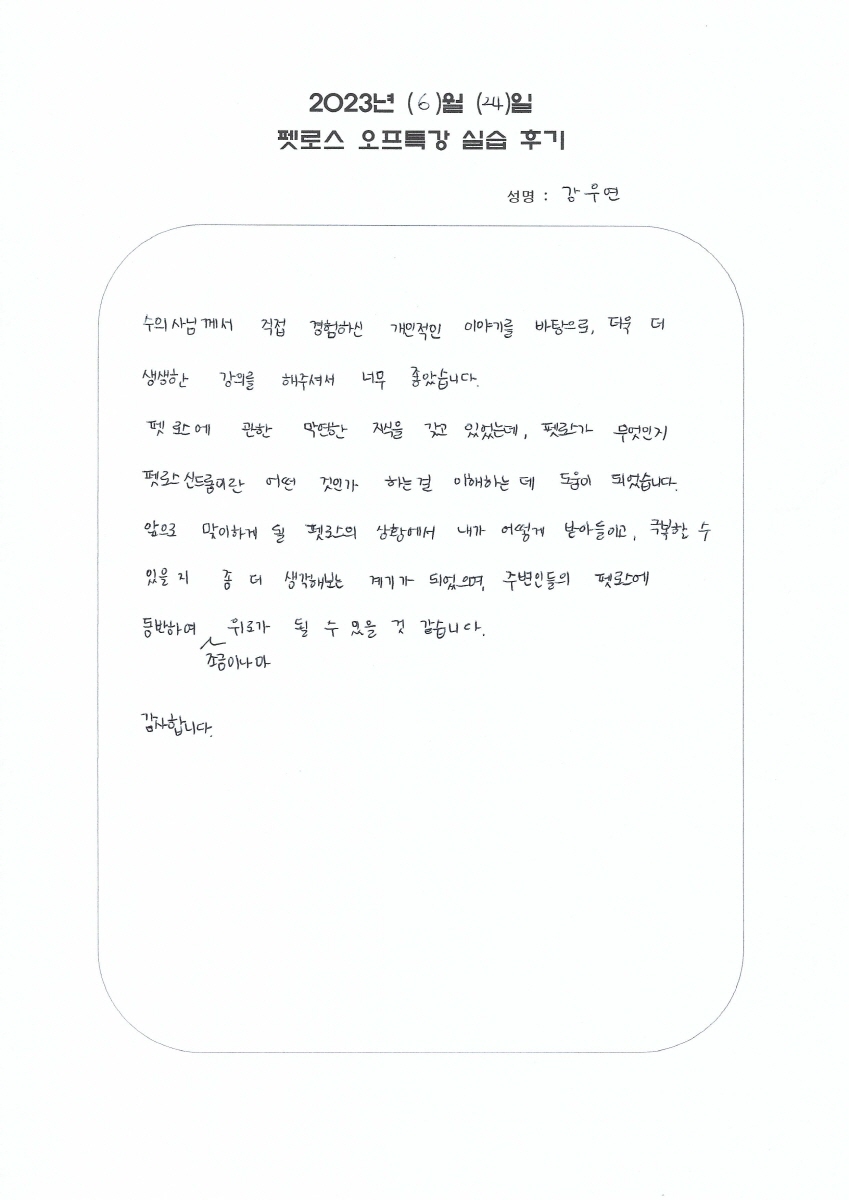 2023년 (6)월 (24)일
펫로스 오프특강 실습 후기
성명 : 강우연
수의사님께서 직접 경험하신 개인적인 이야기를 바탕으로, 더욱 더
생생한 강의를 해주셔서 너무 좋았습니다.
펫로스에 관한 막연한 지식을 갖고 있었는데, 펫로스가 무엇인지
펫로스신드롬이란 어떤 것인가 하는걸 이해하는 데 도움이 되었습니다.
앞으로 맞이하게 될 펫로스의 상황에서 내가 어떻게 받아들이고, 극복한 수
있을지 좀 더 생각해보는 계기가 되었으며, 주변인들의 펫로스에
동반하여 위로가 될 수 있을 것 같습니다.
조금이나마
감사합니다.